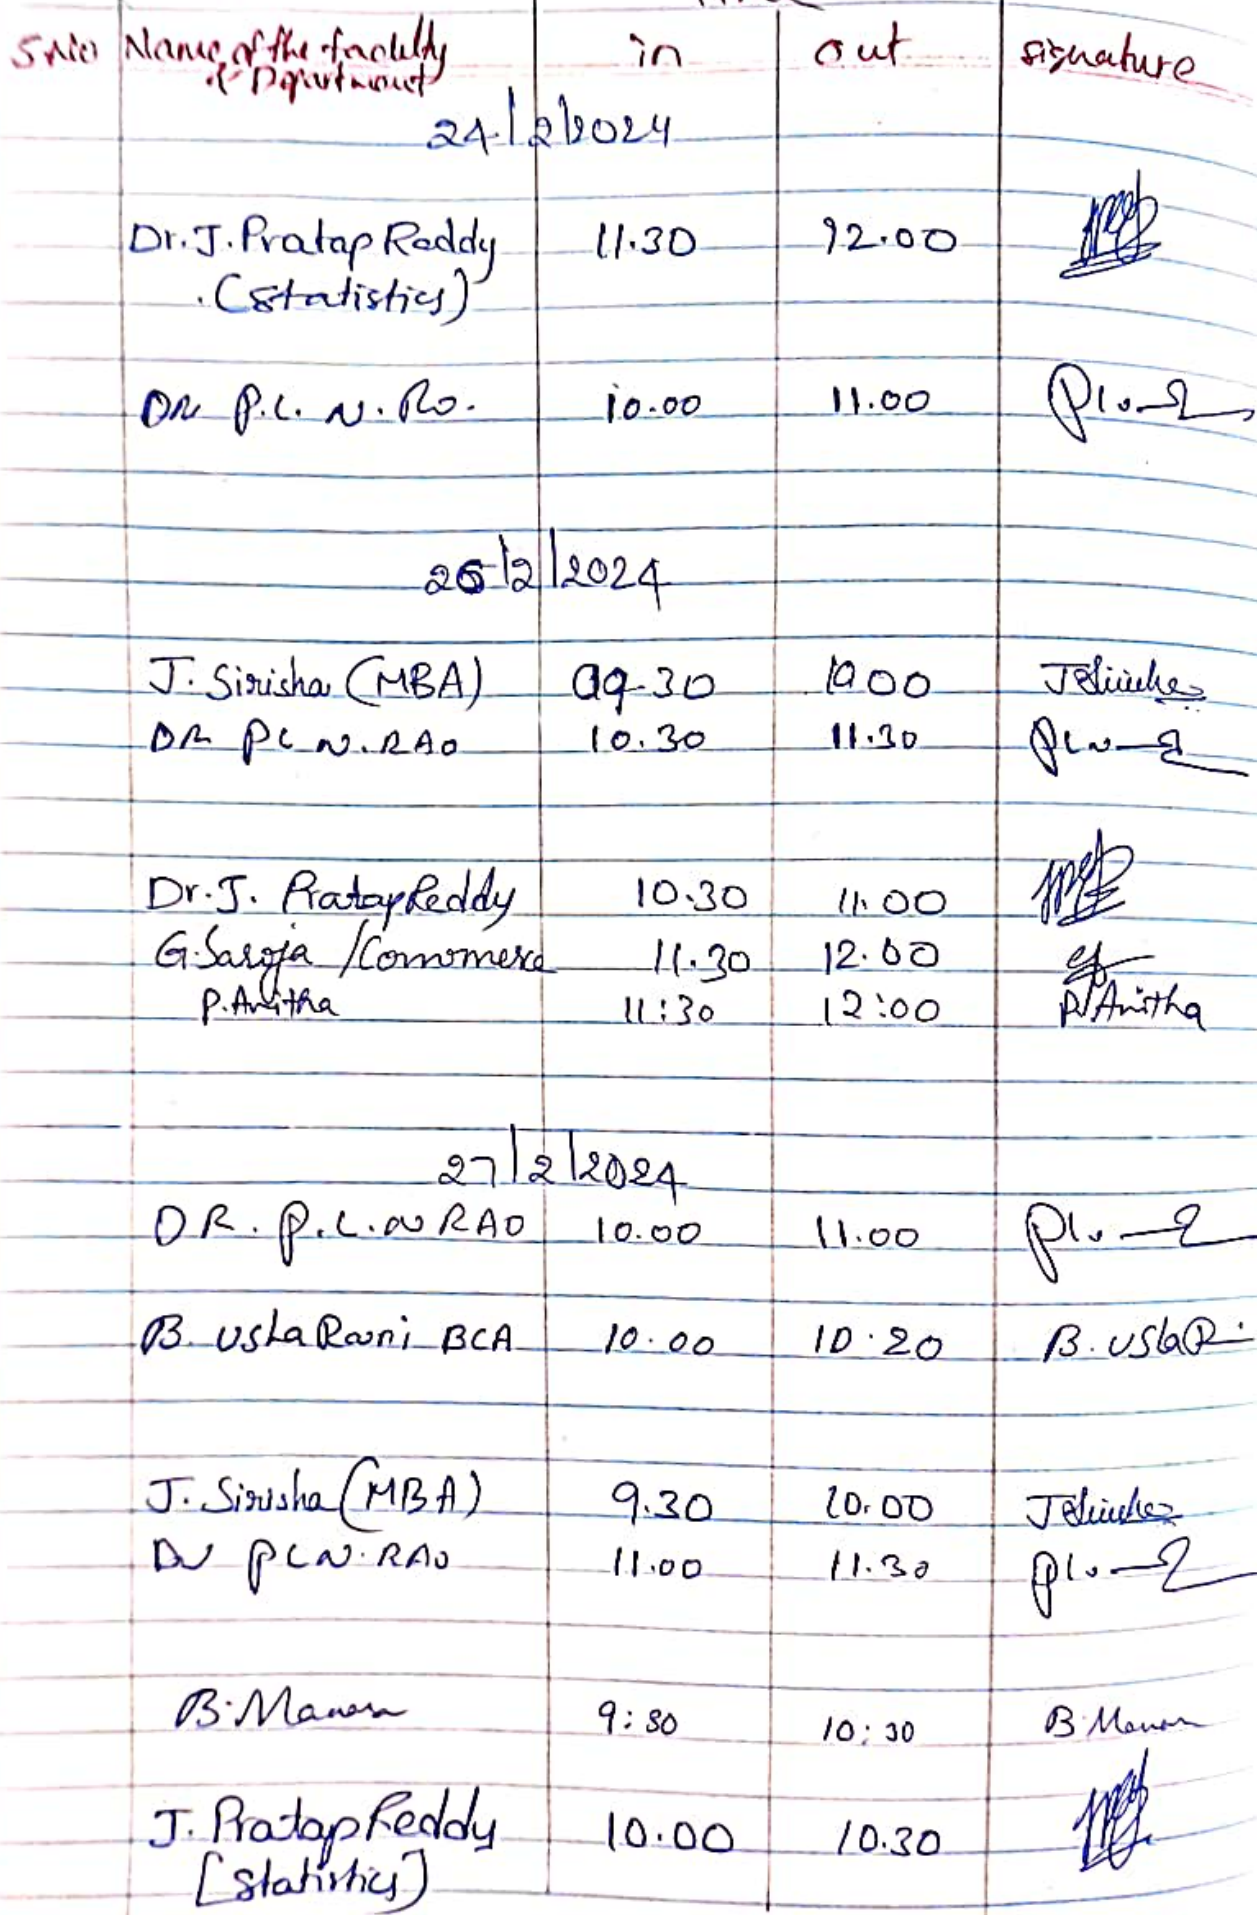 S.No Name of the faculty in out signature
& Department
24/2/2024
Dr. J. Pratap Reddy 11.30 12.00
(Statistics)
DR P.L. N. Ro. 10.00 11.00
26/2/2024
J. Sirisha (MBA) 09.30 10 00 JSirisha
DR PL N. RAO 10.30 11.30
Dr. J. Pratap Reddy 10.30 11.00
G. Saroja / Commerce 11.30 12.00
P. Anitha 11:30 12:00 P. Anitha
27/2/2024
DR. P.L. N RAO 10.00 11.00
B. Usha Rani BCA 10.00 10.20 B. Usha R.
J. Sirisha (MBA) 9.30 10.00 JSirisha
Dr PL N. RAO 11.00 11.30
B. Manasa 9:30 10:30 B. Manasa
J. Pratap Reddy 10.00 10.30
[Statistics]